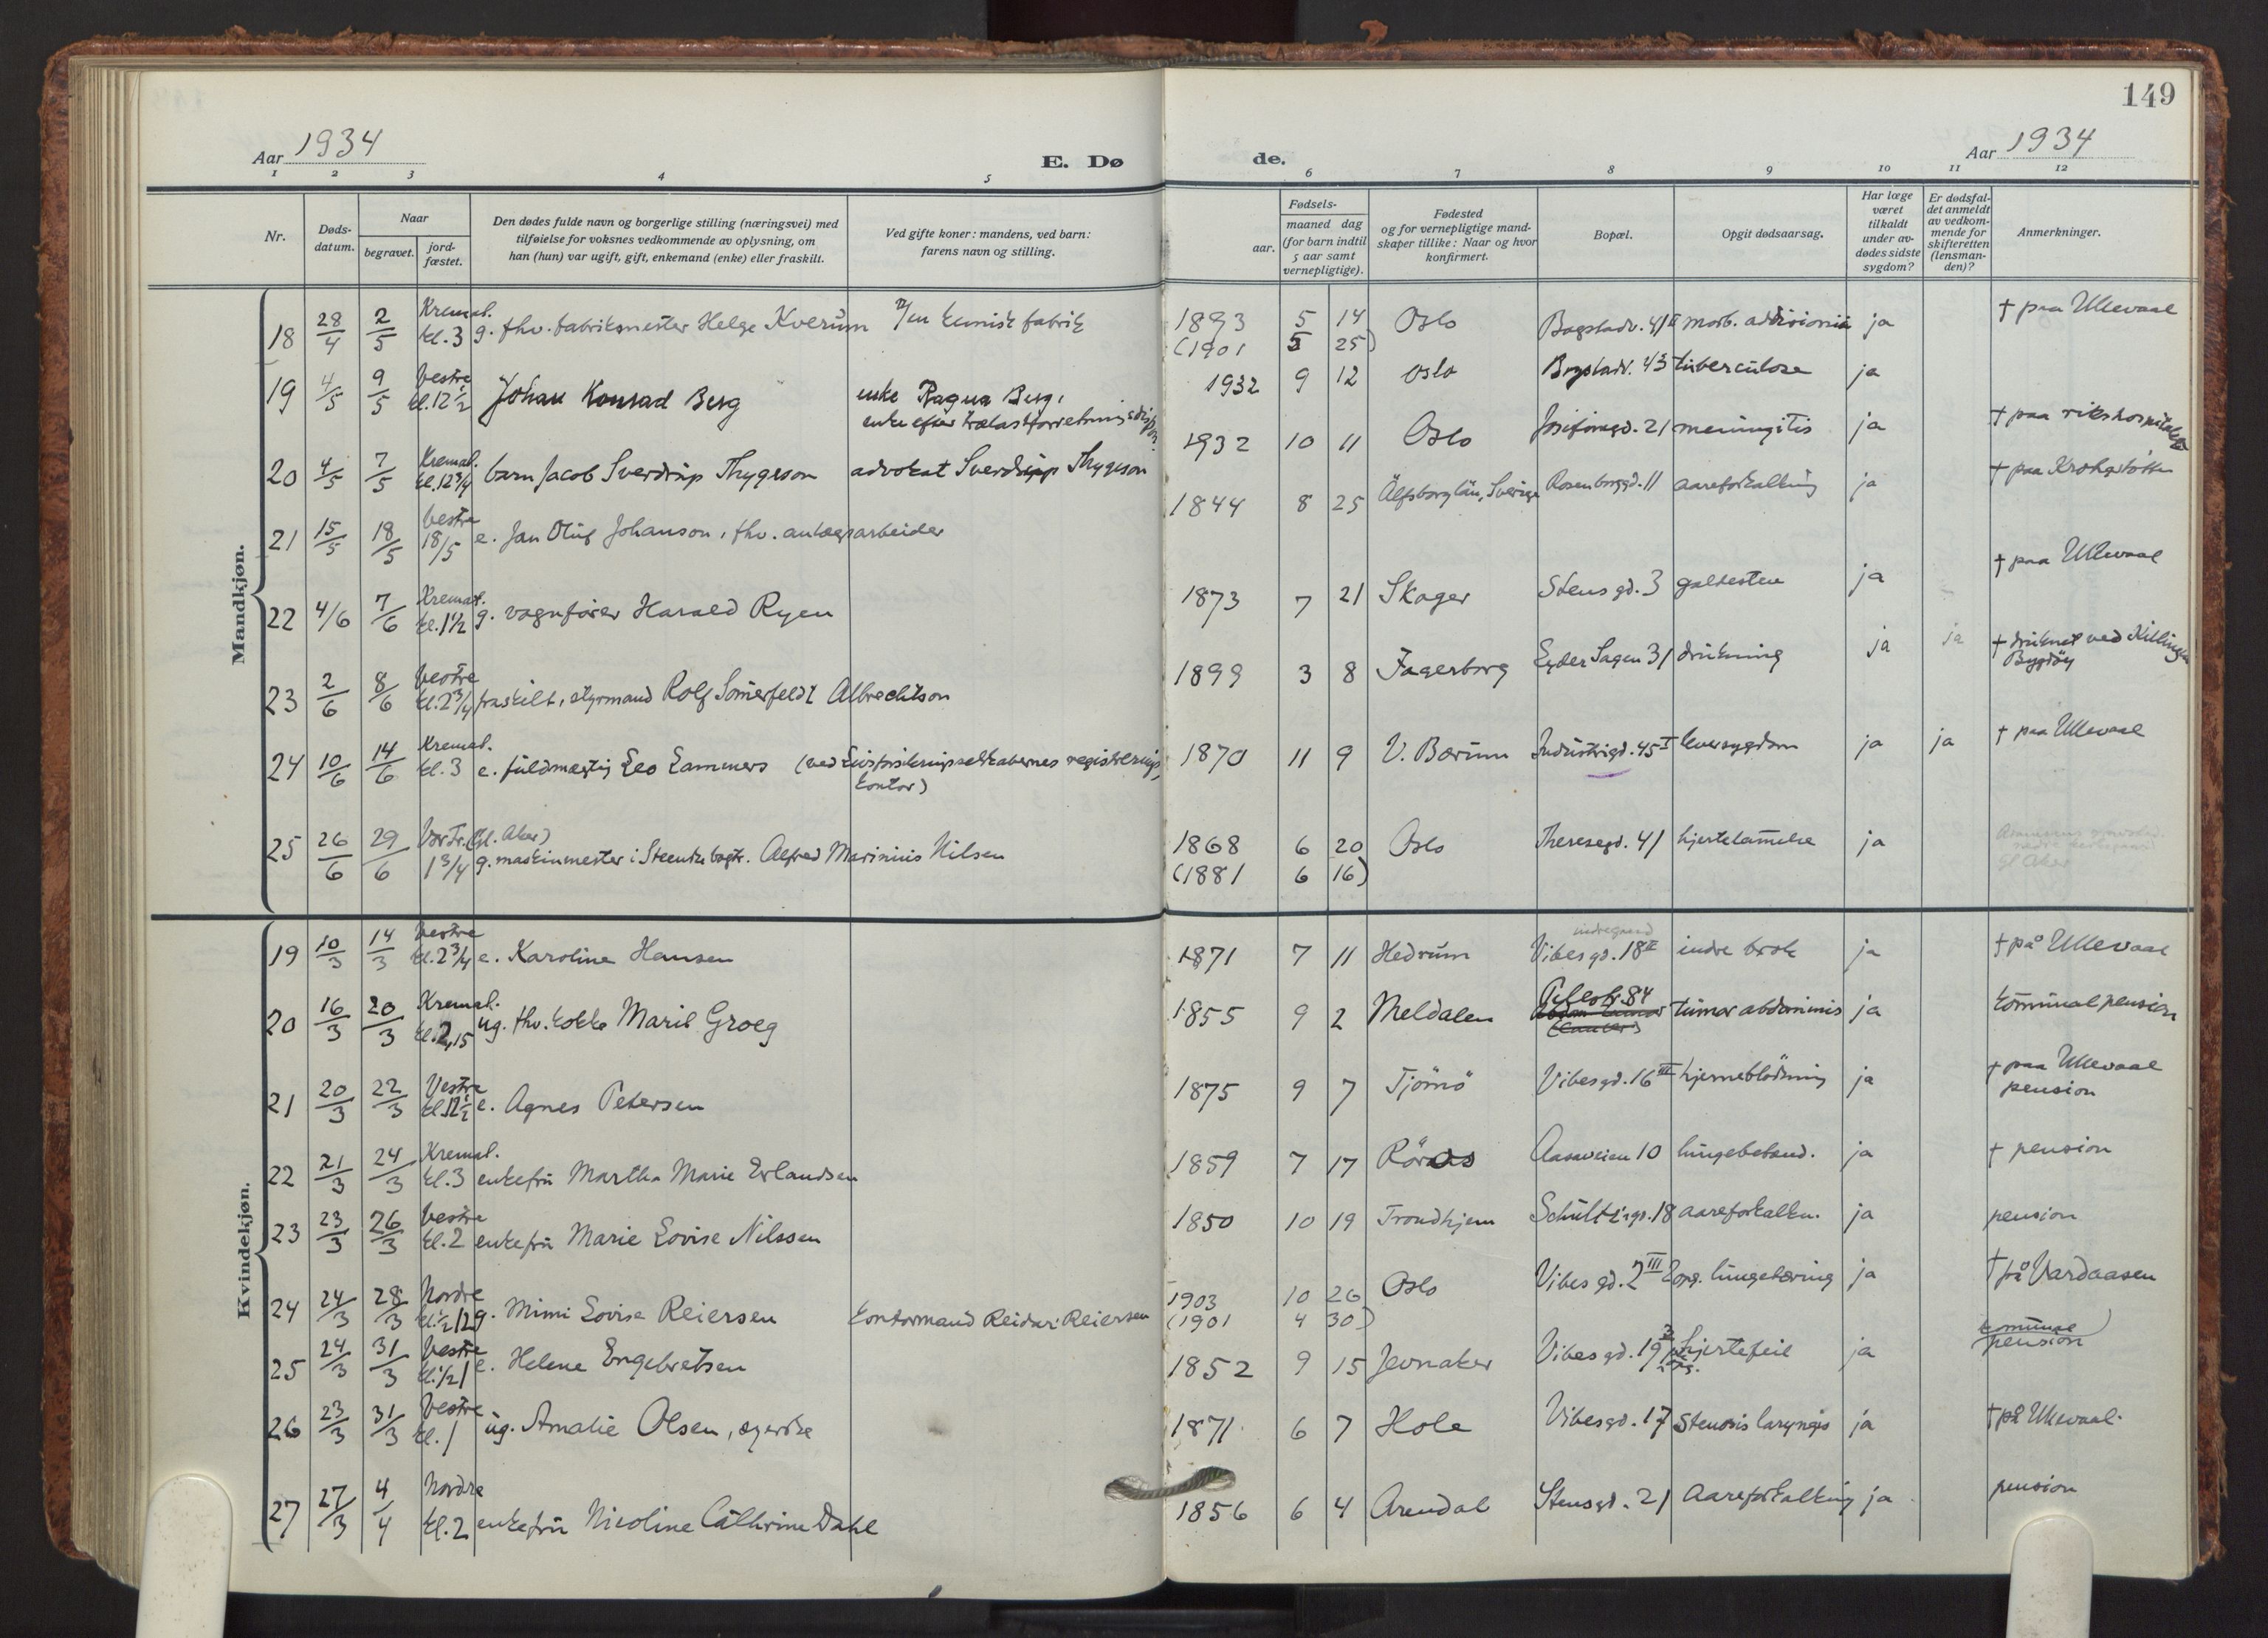 149
Aar 1934
E. Dø
de.
Aar 1934
1 2 3 4 5 6 7 8 9 10 11 12
Nr.
Døds-
datum.
Naar
begravet.
jord-
fæstet.
Den dødes fulde navn og borgerlige stilling (næringsvei) med
tilføielse for voksnes vedkommende av oplysning, om
han (hun) var ugift, gift, enkemand (enke) eller fraskilt.
Ved gifte koner: mandens, ved barn:
farens navn og stilling.
Fødsels-
aar.
maaned dag
(for barn indtil
5 aar samt
vernepligtige).
Fødested
og for vernepligtige mand-
skaper tillike: Naar og hvor
konfirmert.
Bopæl.
Opgit dødsaarsag.
Har læge
været
tilkaldt
under av-
dødes sidste
sygdom?
Er dødsfal-
det anmeldt
av vedkom-
mende for
skifteretten
(lensman-
den)?
Anmerkninger.
Mandkjøn.
18 28/4 2/5 Kremat. kl. 3 g. fhv. fabrikmester Helge Kverum kemisk fabrik 1893 5 14 Oslo Bogstadv. 41 II morb. addisionia ja † paa Ullevaal
(1901 5 25)
19 4/5 9/5 Vestre kl. 12 1/2 Johan Konrad Berg enke Ragna Berg, 1932 9 12 Oslo Bogstadv. 43 tuberculose ja
enke efter trælastforretningsdisp.
20 4/5 7/5 Kremat. kl. 12 3/4 barn Jacob Sverdrup Thygeson advokat Sverdrup Thygeson 1932 10 11 Oslo Josefinegd. 21 meningitis ja † paa rikshospitalet
21 15/5 18/5 Vestre 18/5 e. Jan Oluf Johanson, fhv. anlægsarbeider 1844 8 25 Älfsborg län, Sverige Rosenborggd. 11 aareforkalkning ja † paa Krohgstøtten
22 4/6 7/6 Kremat. kl. 1 1/2 g. vognfører Harald Ryen 1873 7 21 Skoger Stensgd. 3 galdesten ja † paa Ullevaal
23 2/6 8/6 Vestre kl. 2 3/4 fraskilt, styrmand Rolf Somerfeldt Albrechtson 1899 3 8 Fagerborg Lyder Sagen 31 drukning ja ja † druknet ved Killingen
Bygdöy
24 10/6 14/6 Kremat. kl. 3 e. fuldmægtig Leo Lammers (ved Livsforsikringsselskabernes registrerings- 1870 11 9 V. Bærum Industrigd. 45 I leversygdom ja ja † paa Ullevaal
kontor)
25 26/6 29/6 Vor Fr. (Gl. Aker) 1 3/4 g. maskinmester i Steenske bogtr. Alfred Marinius Nilsen 1868 6 20 Oslo Theresegd. 41 hjertelammelse ja
(1881 6 16)
Gl. Aker
Kvindekjøn.
19 10/3 14/3 Vestre kl. 2 3/4 e. Karoline Hansen 1871 7 11 Hedrum Vibesgd. 18 II indre brok ja † på Ullevaal
20 16/3 20/3 Kremat. kl. 2,15 ug. fhv. kokke Marit Groeg 1855 9 2 Meldalen Pilestr. 84 tumor abdominis ja kommunal pension
21 20/3 22/3 Vestre kl. 12 1/2 e. Agnes Petersen 1875 9 7 Tjömö Vibesgd. 16 III hjerneblödning ja † paa Ullevaal
pension
22 21/3 24/3 Kremat. kl. 3 enkefru Martha Marie Erlandsen 1859 7 17 Röraas Aasaveien 10 lungebetænd. ja † pension
23 23/3 26/3 Vestre kl. 2 enkefru Marie Lovise Nilssen 1850 10 19 Trondhjem Schultzgd. 18 aareforkalkn. ja pension
24 24/3 28/3 Nordre kl. 1/2 12 g. Mimi Lovise Reiersen kontormand Reidar Reiersen 1903 10 26 Oslo Vibesgd. 2 III lungetæring ja † på Vardaasen
(1901 4 30)
25 24/3 31/3 Vestre kl. 1/2 1 e. Helene Engebretsen 1852 9 15 Jevnaker Vibesgd. 19 hjertefeil ja kommune
pension
26 23/3 31/3 Vestre kl. 1 ug. Amalie Olsen, syerske 1871 6 7 Hole Vibesgd. 17 stenosis laryngis ja † på Ullevaal.
27 27/3 4/4 Nordre kl. 2 enkefru Nicoline Cathrine Dahl 1856 6 4 Arendal Stensgd. 21 aareforkalkning ja pension